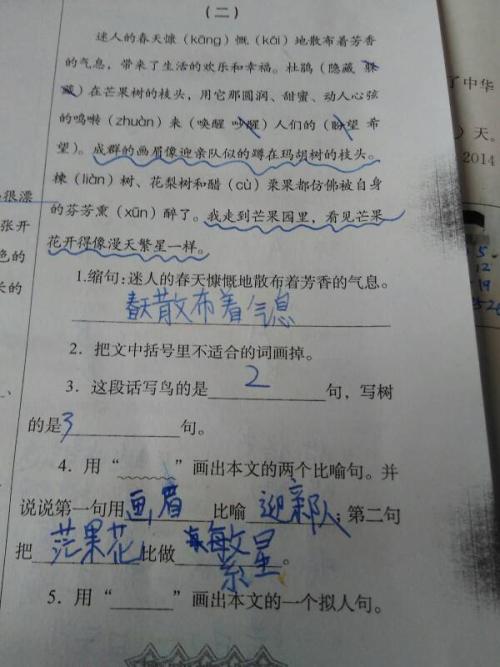 （二）
迷人的春天慷（kāng）慨（kǎi）地散布着芳香
的气息，带来了生活的欢乐和幸福。杜鹃（隐藏 躲
藏）在芒果树的枝头，用它那圆润、甜蜜、动人心弦
的鸣啭（zhuàn）来（唤醒 吵醒）人们的（盼望 希
望）。成群的画眉像迎亲队似的蹲在玛胡树的枝头。
楝（liàn）树、花梨树和醋（cù）栗果都仿佛被自身
的芬芳熏（xūn）醉了。我走到芒果园里，看见芒果
花开得像漫天繁星一样。
1.缩句：迷人的春天慷慨地散布着芳香的气息。
春天散布着气息
2．把文中括号里不适合的词画掉。
3．这段话写鸟的是 2 句，写树
的是 3 句。
4．用“ ”画出本文的两个比喻句。并
说说第一句用 画眉 比喻 迎亲队人；第二句
把 茫果花 比做 星。
5．用“ ”画出本文的一个拟人句。
很漂
张开
色的
长的
了中华
）天。
2014
5
12
19